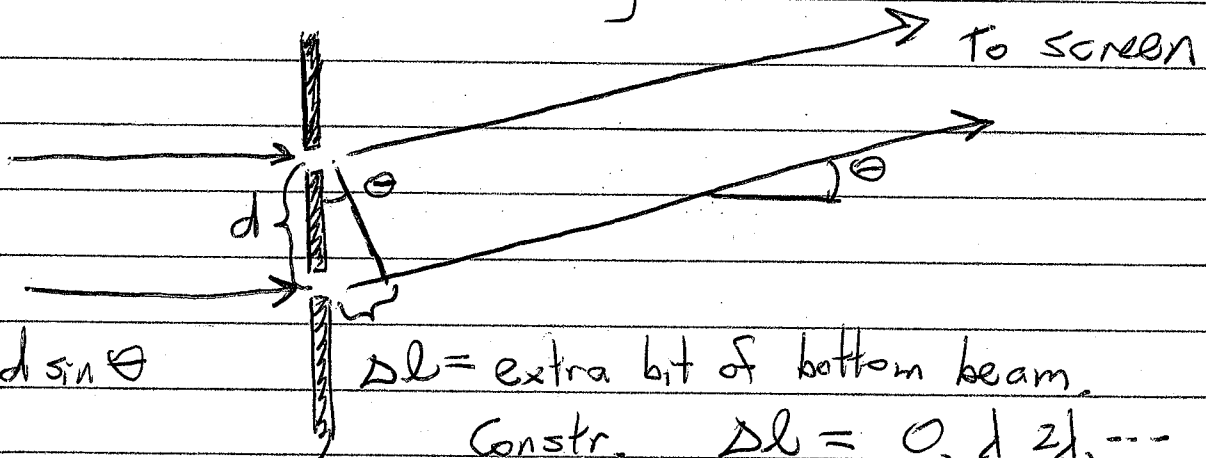 To screen
θ
θ
d
d sin θ
Δl = extra bit of bottom beam.
Constr. Δl = 0, d 2d, ---